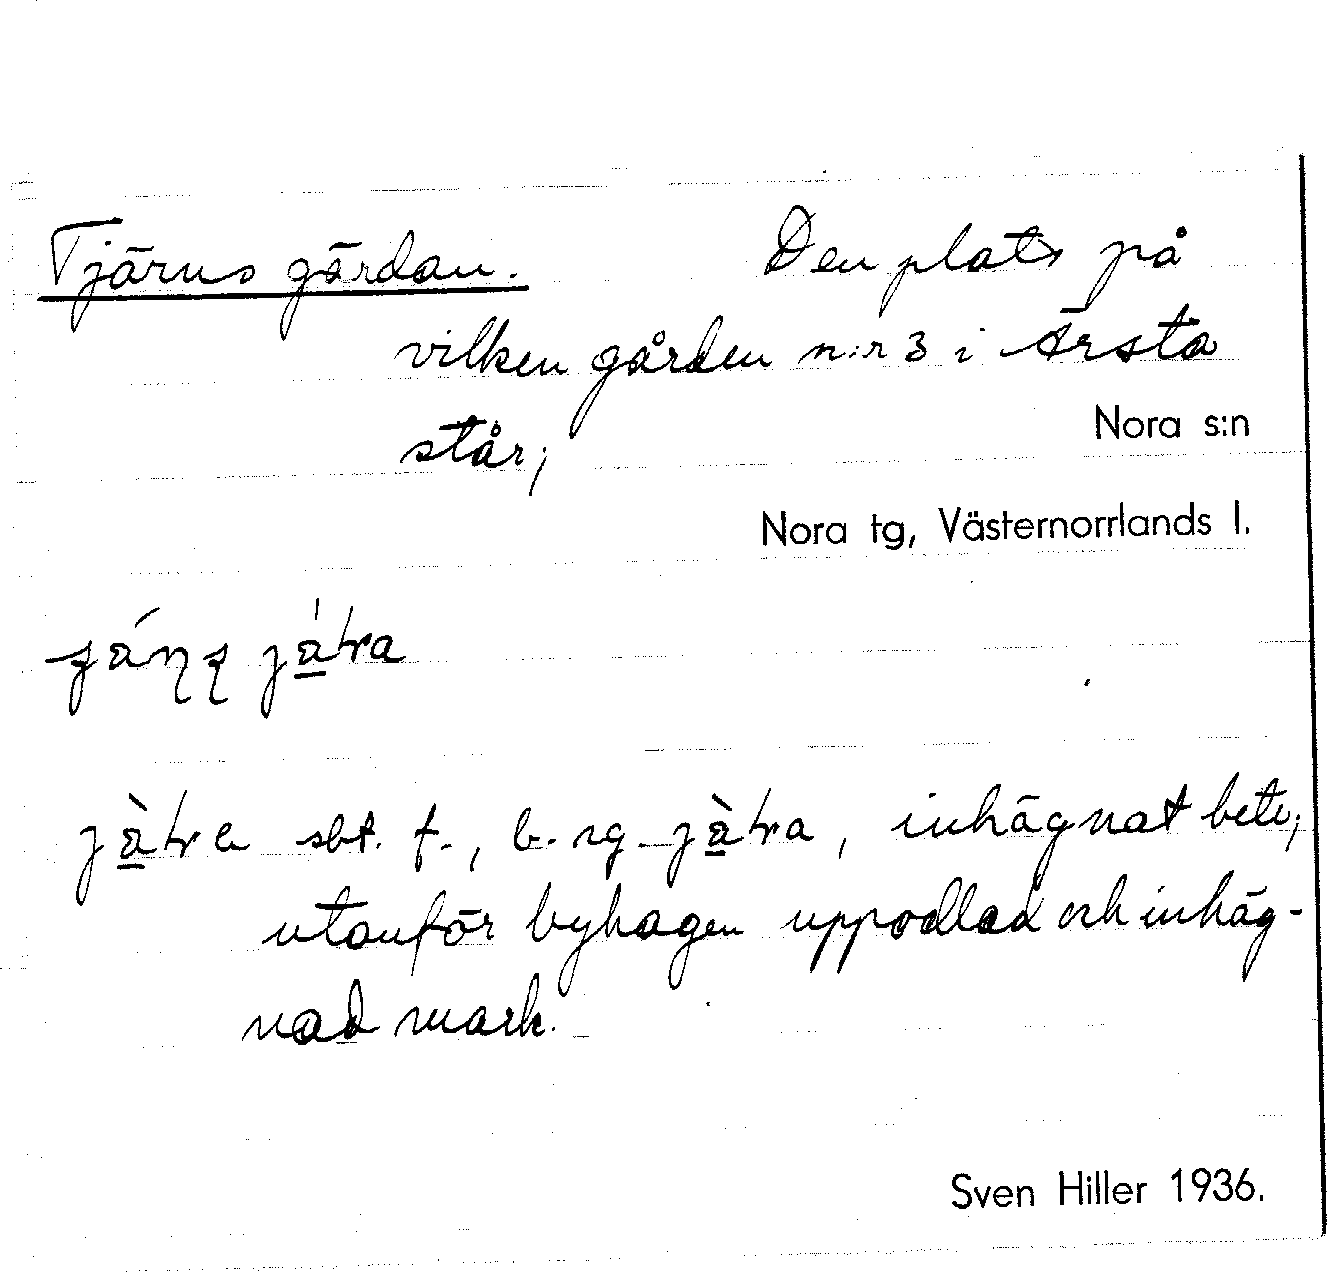 Tjärus gärdan. Den plats på
vilken gården n:r 3 i Ärsta
står;
Nora s:n
Nora tg, Västernorrlands l.
sbt. f., b. sg. , inhägnat bete;
utanför byhagen uppodlad och inhäg-
nad mark.
Sven Hiller 1936.